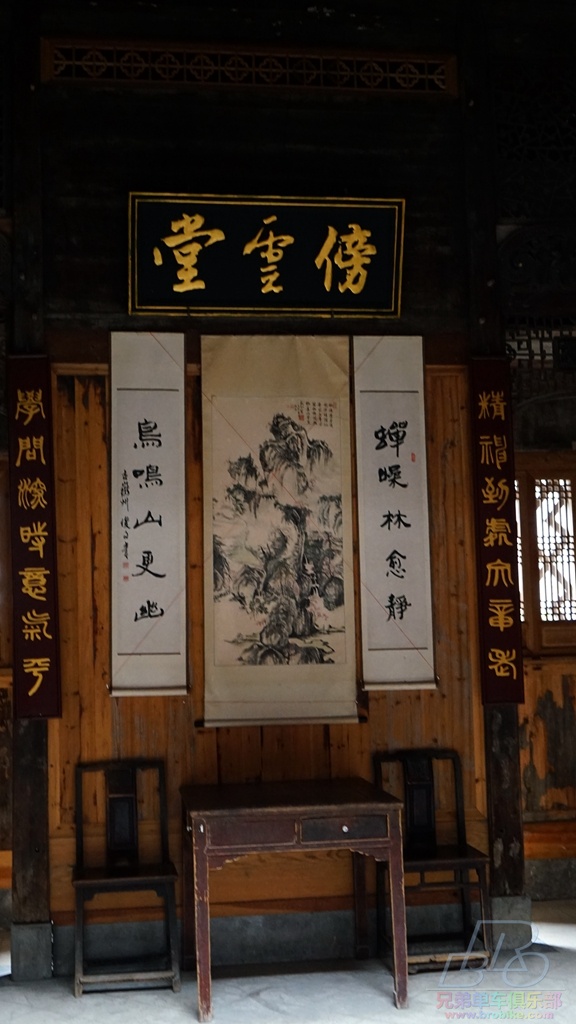 傍雲堂
精神到處文章老
蟬噪林愈靜
鳥鳴山更幽
學問深時意氣平
兄弟单车俱乐部
www.brobike.com